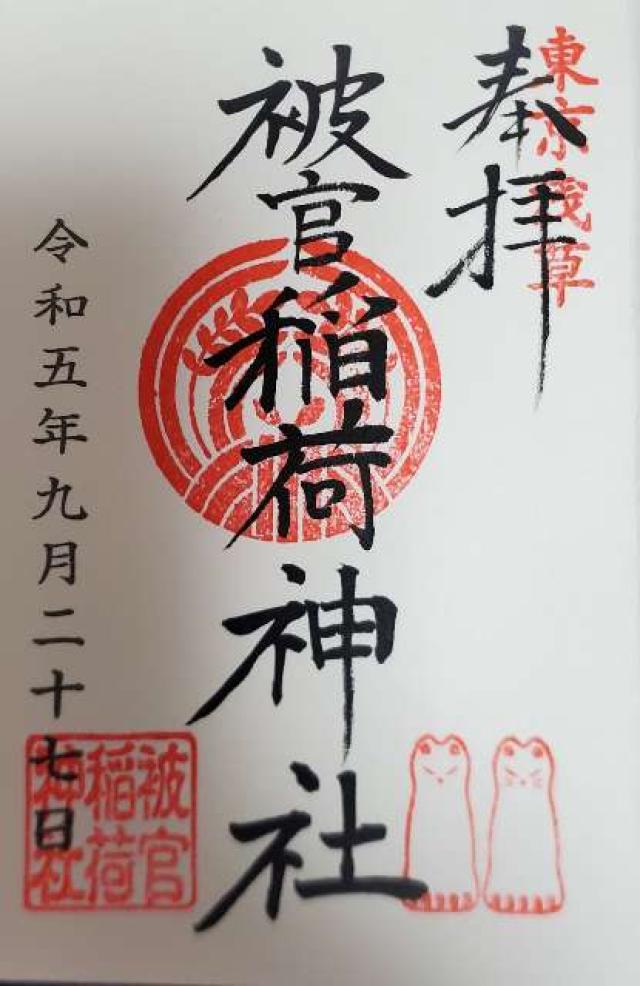 東京浅草
奉拝
被官稲荷神社
令和五年九月二十七日
被官
稲荷
神社